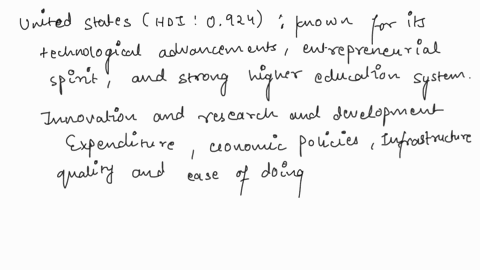 United States (HDI : 0.924) : known for its
technological advancements, entrepreneurial
spirit, and strong higher education system.
Innovation and research and development
Expenditure, economic policies, Infrastructure
quality and ease of doing